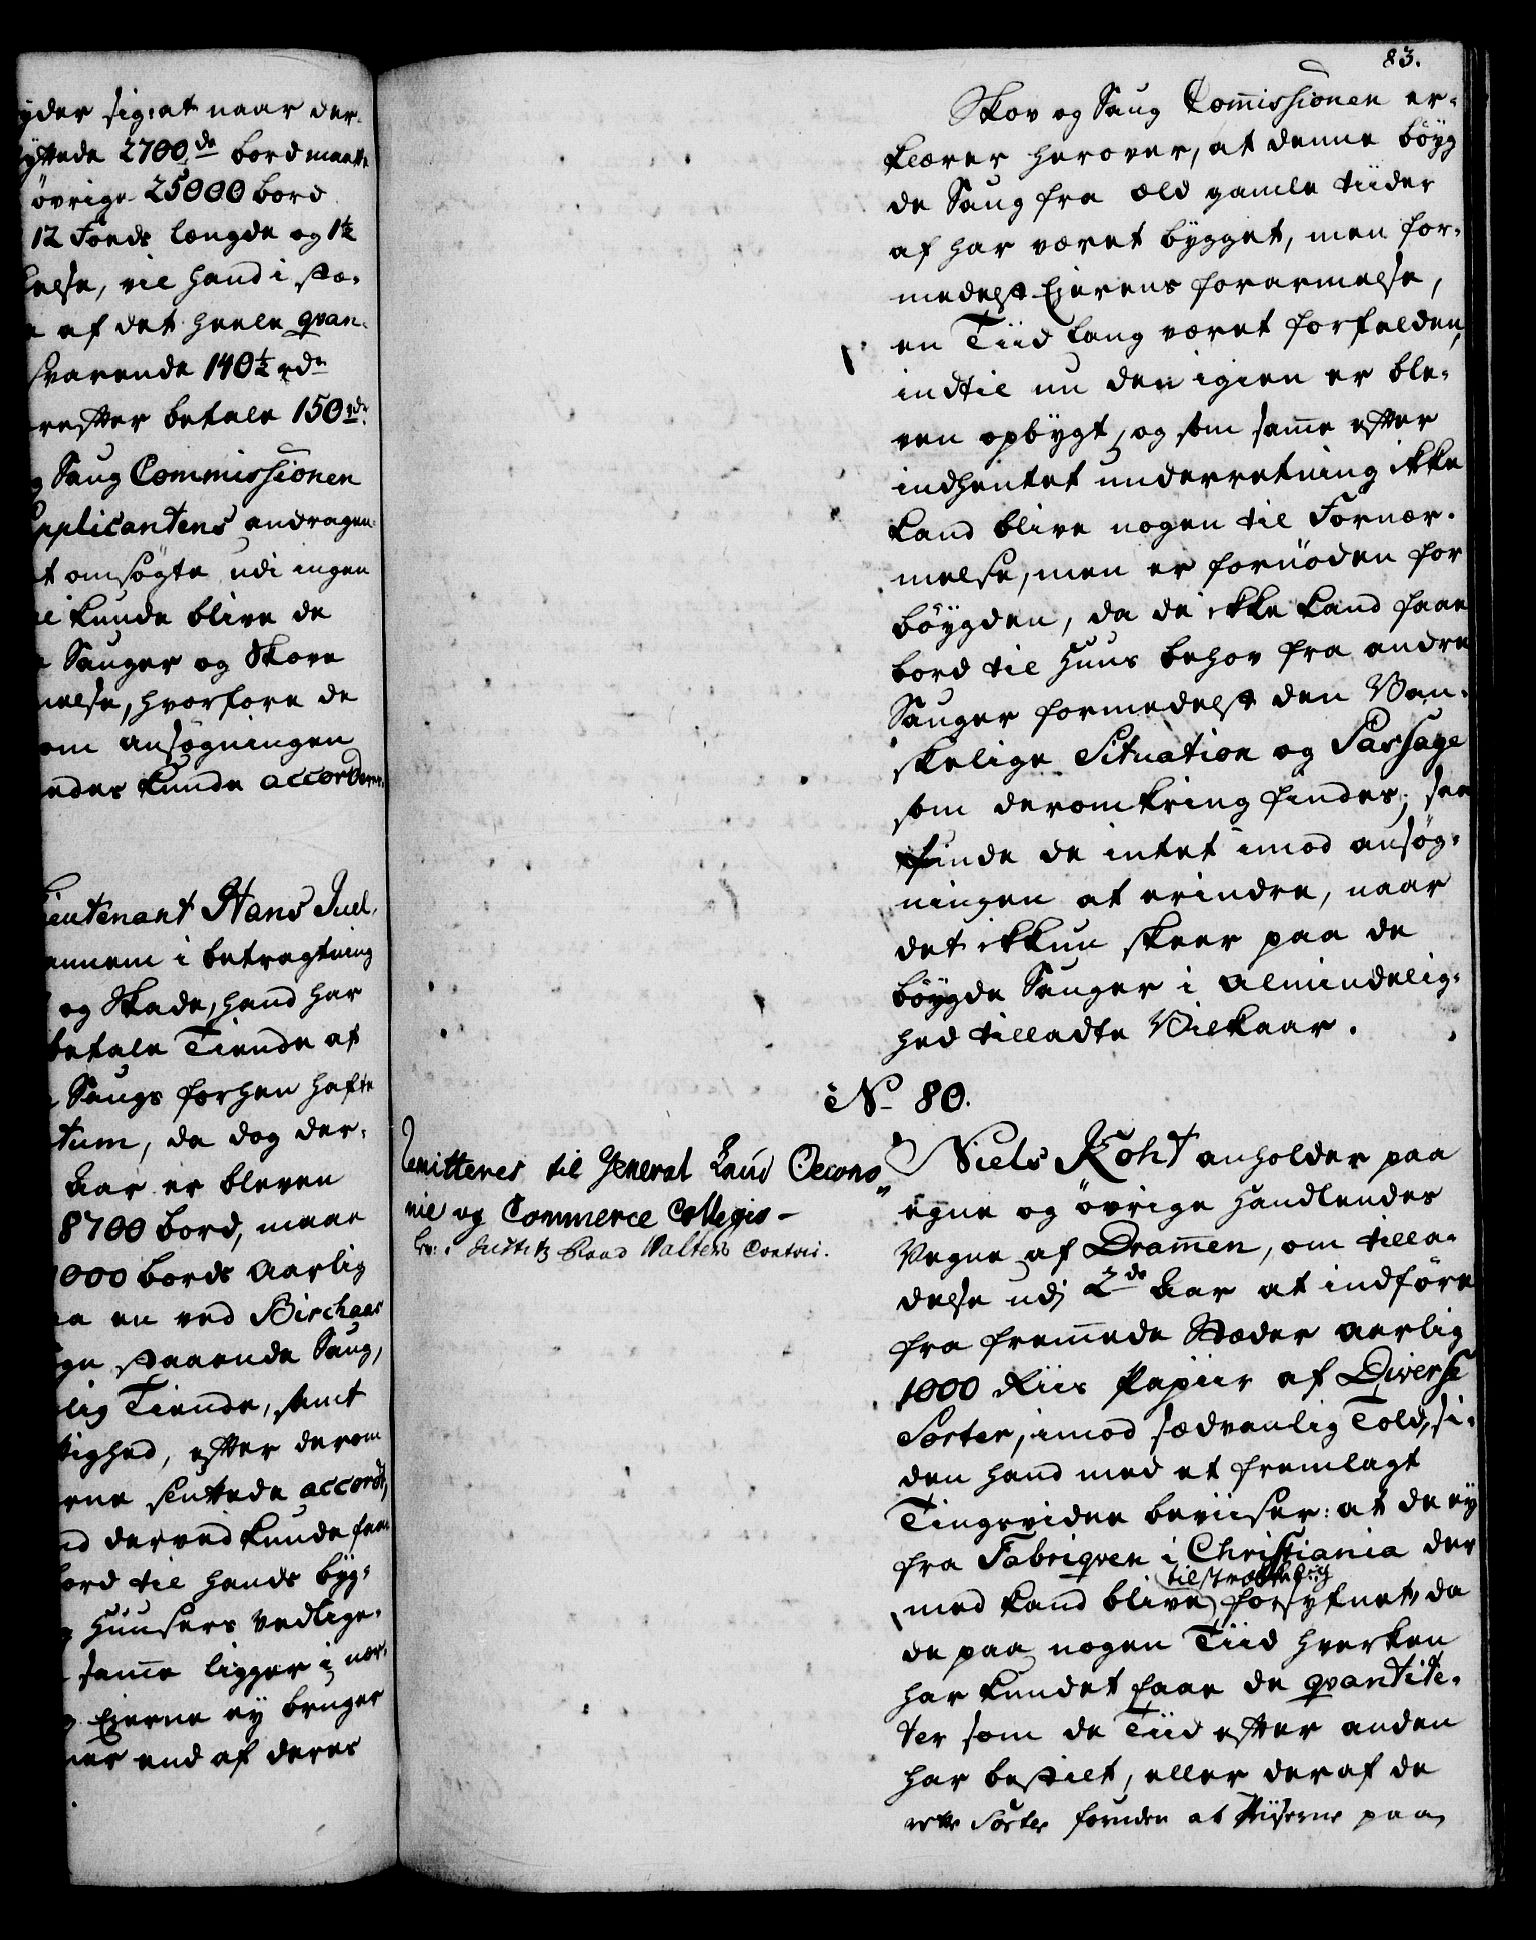 yder sig: at naar der-
2700de bord maatte
övrige 25000 bord
12 Foeds længde og 1½
else, vil hand i stæ-
af det heele qvan-
svarende 140½ rdr
refter betale 150 rdr
Saug Commissionen
pplicantens andragen-
t omsögte udi ingen
kunde blive de
Sauger og Skove
melse, hvorfore de
om ansögningen
ledes kunde accorderes.
Lieutenant Hans Juel,
annem i betragtning
og Skade, hand har
betale Tiende af
Saugs forhen hafte
tum, da dog der-
Aar er bleven
8700 bord, maae
1000 bords Aarlig
en ved Birchaas
staaende Saug,
lig Tiende, samt
tighed, efter derom
sluttede accordt,
nd derved kunde faae
bord til hands byg-
Huusers vedlige-
samme ligger i nær-
Ejerne ey bruger
mer end af deres
83.
Skov og Saug Com̄issionen er-
klærer herover, at denne böyg
de Saug fra old gamle tiider
af har været bygget, men for-
medelst Ejerens forarmelse,
en Tiid lang været forfalden,
indtil nu den igien er ble-
ven opbygt, og som sam̄e efter
indhentet underretning ikke
kand blive nogen til Fornær-
melse, men er fornöden for
böygden, da de ikke kand faae
bord til Huus behov fra andre
Sauger formedelst den Van-
skelige Situation og Passage
som deromkring findes; saa
finde de intet imod ansög-
ningen at erindre, naar
det ikkun skeer paa de
böygde Sauger i Almindelig-
hed tilladte Vilkaar.
No 80.
Remitteres til General Land Oecono-
mie og Commerce Collegio -
lev: i Justitz Raad Walters Contoir.
Niels Koht anholder paa
egne og övrige Handlendes
Vegne af Dram̄en, om tilla-
delse udj 2de Aar at indföre
fra frem̄ede Stæder aarlig
1000 Riis Papiir af Diverse
Sorter, imod sædvanlig Told, si-
den hand med et fremlagt
Tingsvidne beviiser: at de ey
fra Fabriqven i Christiania der
med kand blive tilstrækkelig forsÿnet, da
de paa nogen Tiid hverken
har kundet faae de qvantite-
ter som de Tiid efter anden
har bestilt, eller deraf de
rette Sorter foruden at Priserne paa